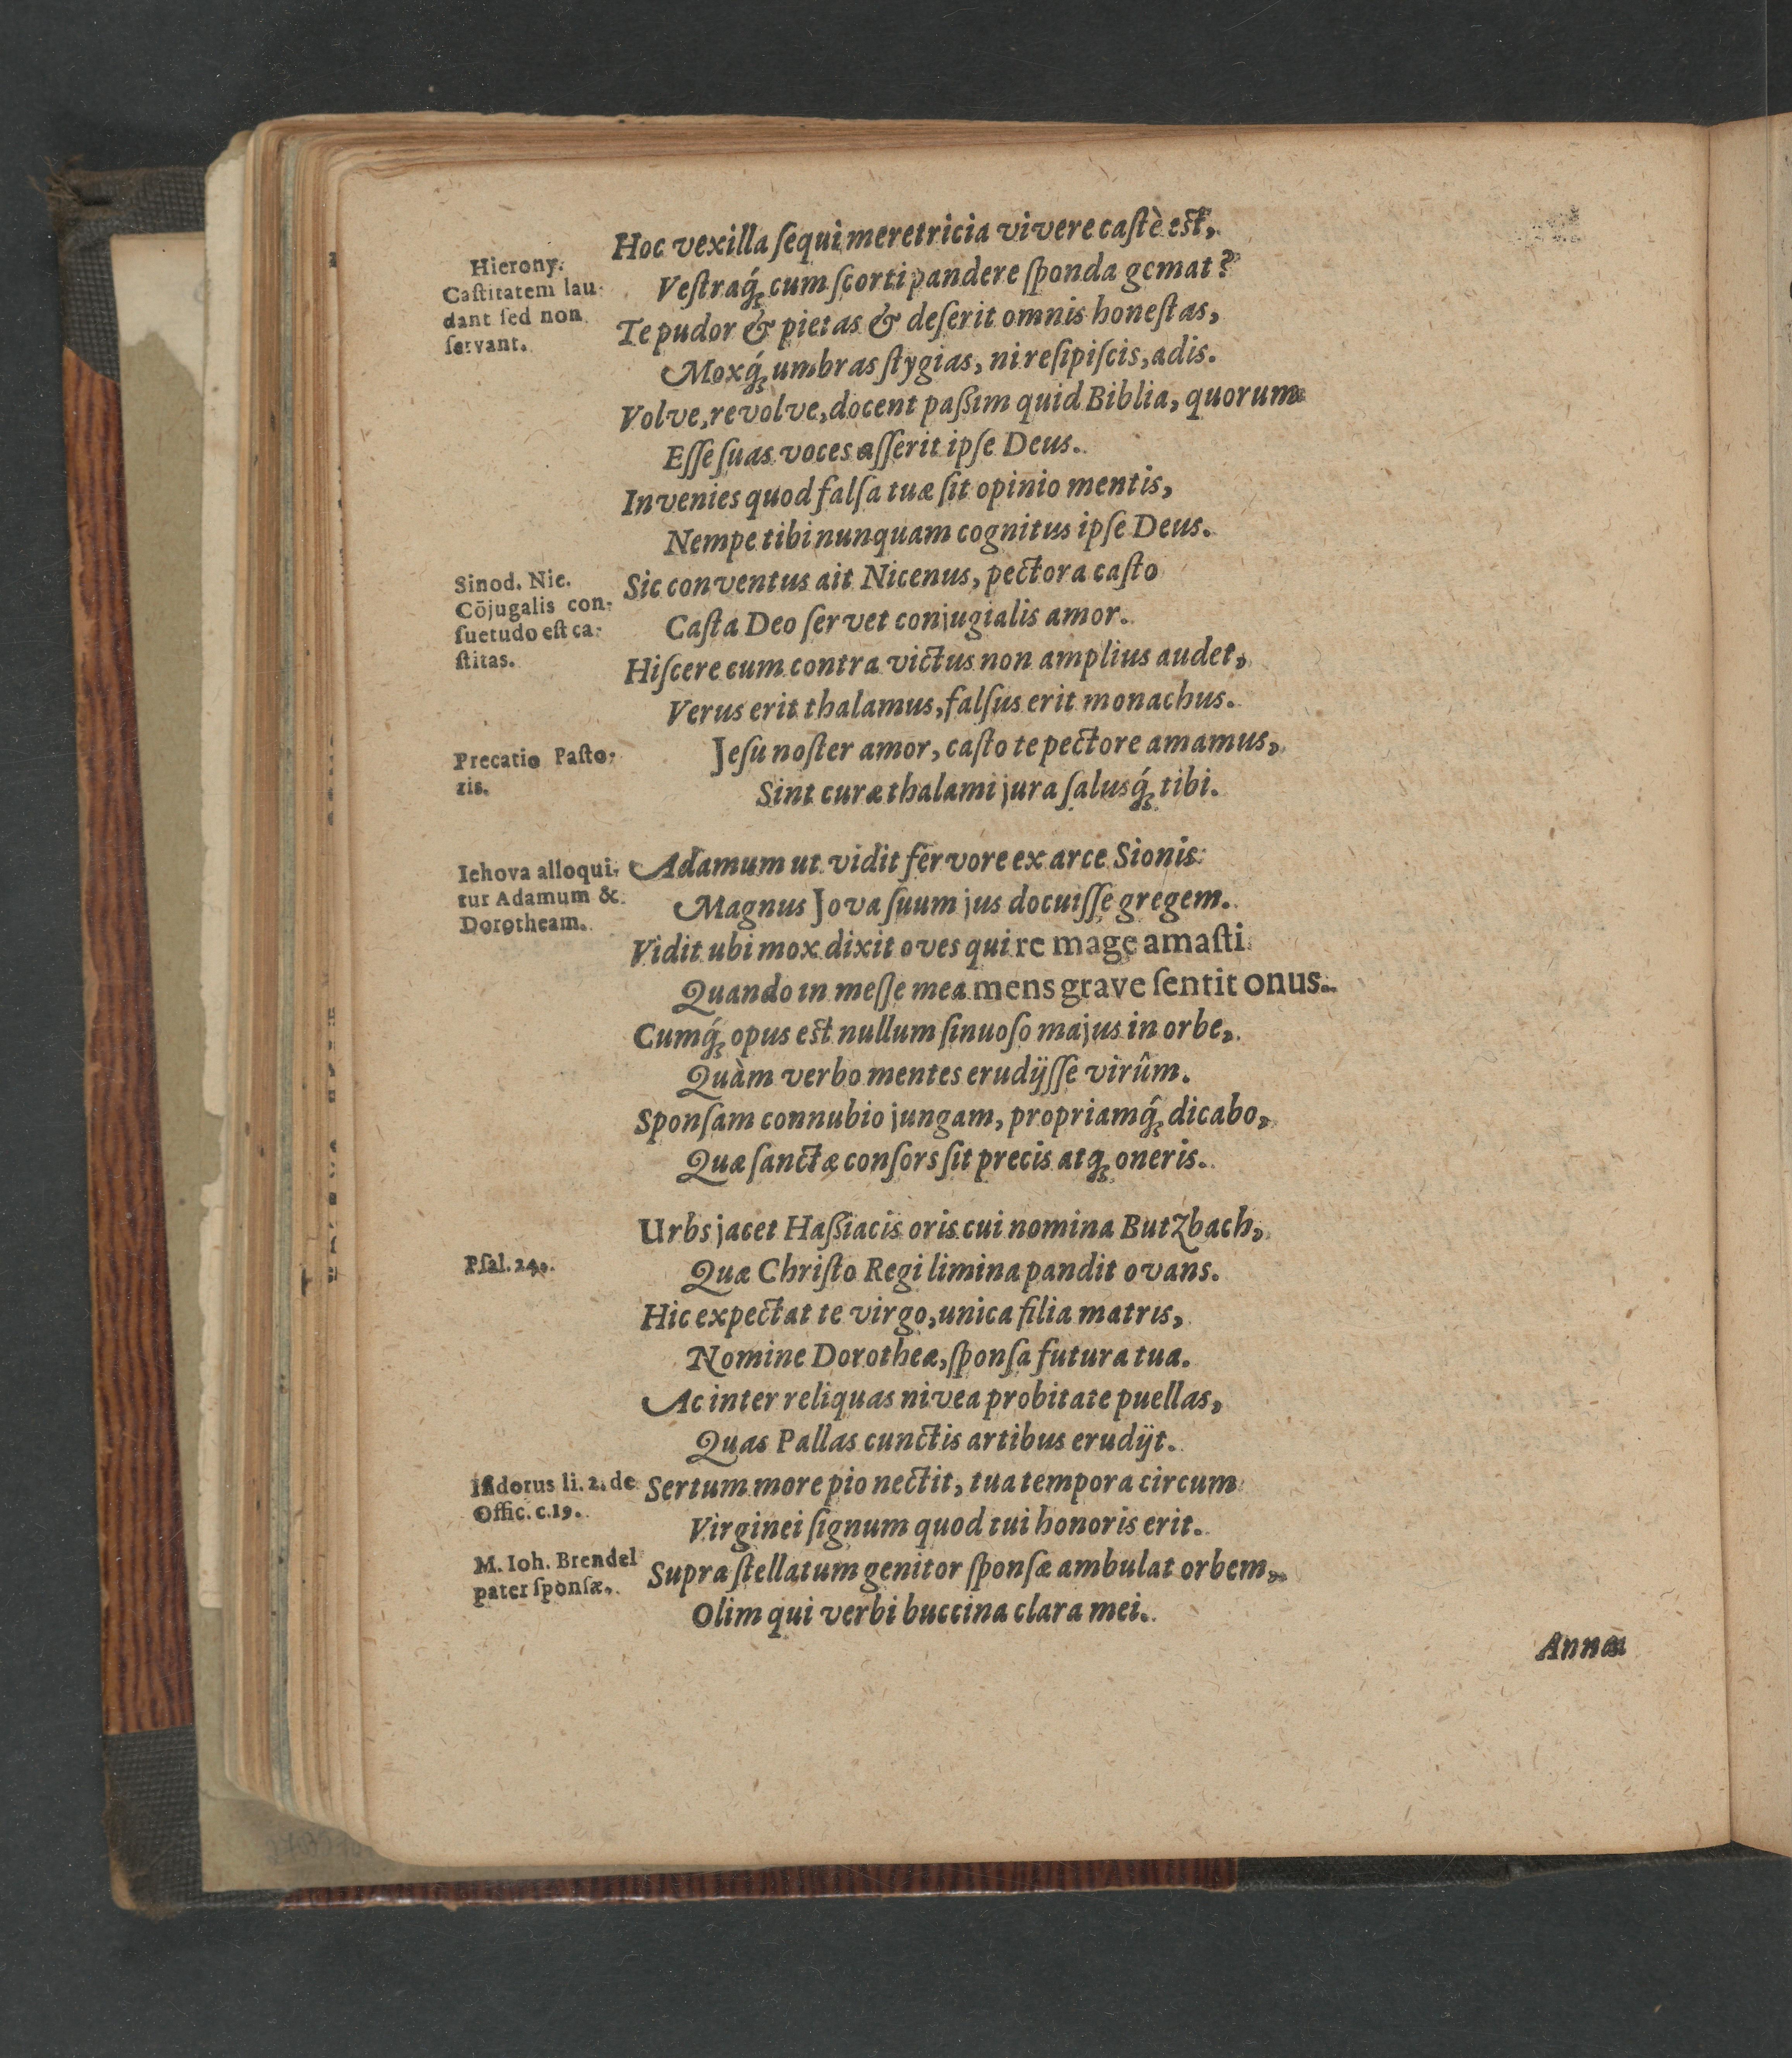 Hoc vexilla ſequi meretricia vivere caſtè eſt,
Hierony.
Caſtitatem lau-
dant ſed non
ſervant.
Veſtraq́; cum ſcorti pandere ſponda gemat?
Te pudor & pietas & deſerit omnis honeſtas,
Moxq́; umbras ſtygias, ni reſipiſcis, adis.
Volve, revolve, docent paßim quid Biblia, quorum
Eſſe ſuas voces aſſerit ipſe Deus.
Invenies quod falſa tuæ ſit opinio mentis,
Nempe tibi nunquam cognitus ipſe Deus.
Sinod. Nic.
Cōjugalis con-
ſuetudo eſt ca-
ſtitas.
Sic conventus ait Nicenus, pectora caſto
Caſta Deo ſervet conjugialis amor.
Hiſcere cum contra victus non amplius audet,
Verus erit thalamus, falſus erit monachus.
Precatio Paſto-
ris.
Jeſu noſter amor, caſto te pectore amamus,
Sint curæ thalami jura ſalusq́; tibi.
Iehova alloqui-
tur Adamum &
Dorotheam.
Adamum ut vidit fervore ex arce Sionis
Magnus Jova ſuum jus docuiſſe gregem.
Vidit ubi mox dixit oves qui re mage amaſti
Quando in meſſe mea mens grave ſentit onus.
Cumq́; opus eſt nullum ſinuoſo majus in orbe,
Quàm verbo mentes erudijſſe virûm.
Sponſam connubio jungam, propriamq́; dicabo,
Quæ ſanctæ conſors ſit precis atq; oneris.
Urbs jacet Haßiacis oris cui nomina Butzbach,
Pſal. 24.
Quæ Chriſto Regi limina pandit ovans.
Hic expectat te virgo, unica filia matris,
Nomine Dorothea, ſponſa futura tua.
Ac inter reliquas nivea probitate puellas,
Quas Pallas cunctis artibus erudijt.
Iſidorus li. 2. de
Offic. c. 19.
Sertum more pio nectit, tua tempora circum
Virginei ſignum quod tui honoris erit.
M. Ioh. Brendel
pater ſponſæ.
Supra ſtellatum genitor ſponſæ ambulat orbem,
Olim qui verbi buccina clara mei.
Annæ